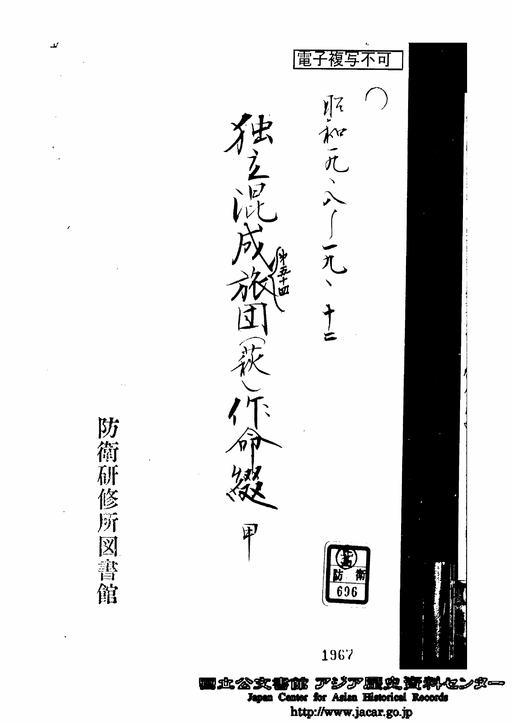 電子複写不可
昭和一九、八~一九、十二
独立混成旅団(萩)作命綴 甲
第五十四
防衛研修所図書館
防衛
696
1967
国立公文書館 アジア歴史資料センター
Japan Center for Asian Historical Records
http://www.jacar.go.jp